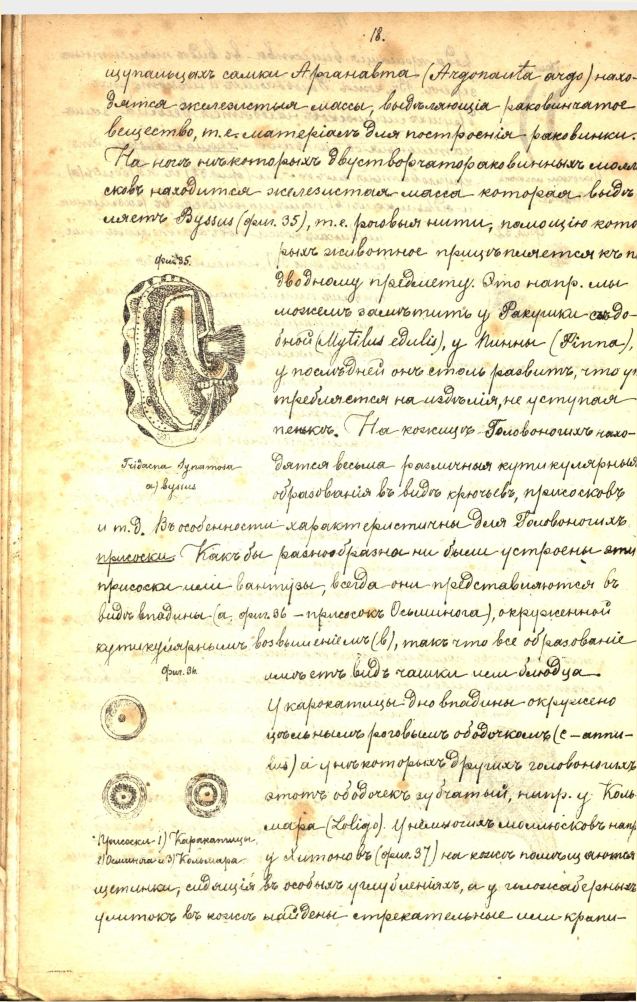 18.
щупальцахъ самки Арганавта (Argonauta argo) нахо-
дятся железистыя массы, выдѣляющія раковинчатое
вещество, т.е. матеріалъ для построенія раковинки.
На ногѣ нѣкоторыхъ двустворчатораковинныхъ молл
сковъ находится железистая масса которая выдѣ
ляетъ Byssus (фиг. 35), т.е. роговыя нити, помощію кото
рыхъ животное прицѣпляется къ п
дводному предмету. Это напр. мы
можемъ замѣтить у Ракушки съѣдо-
бной (Mytilus edulis), у Пинны (Pinna),
у послѣдней онъ столь развитъ, что у
требляется на издѣлія, не уступая
пенькѣ. На кожицѣ Головоногихъ нахо-
дятся весьма различныя кутикулярныя
образованія въ видѣ крючьевъ, присосковъ
фиг. 35.
Tridacna Synatosa
a) byssus
и т.д. Въ особенности характеристичны для Головоногихъ
присоски. Какъ бы разнообразна ни были устроены эти
присоски или вантузы, всегда они представляются въ
видѣ впадины (а, фиг. 36 – присосокъ Осьминога), окруженной
кутикулярнымъ возвышеніемъ (в), такъ что все образованіе
имѣетъ видъ чашки или блюдца.
У каракатицы дно впадины окружено
цѣльнымъ роговымъ ободочкомъ (с – annu-
lus) а у нѣкоторыхъ другихъ головоногихъ
этотъ ободочекъ зубчатый, напр. у Коль-
мара (Loligo). У немногихъ молюсковъ напр
у Хитоновъ (фиг. 37) на кожѣ помѣщаются
фиг. 36.
Присоски 1) Каракатицы,
2) Осминога и 3) Кольмара.
щетинки, сидящія въ особыхъ углубленіяхъ, а у голожаберныхъ
улитокъ въ кожѣ найдены стрекательные или крапи-